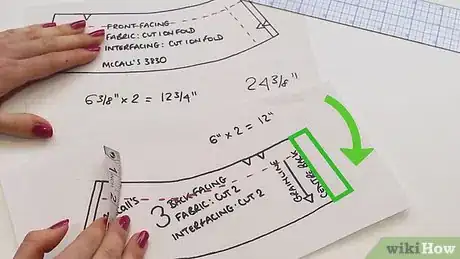 FRONT FACING
FABRIC: CUT 1 ON FOLD
INTERFACING: CUT 1 ON FOLD
McCALL'S 3830
24 3/8"
6 3/8" x 2 = 12 3/4"
6" x 2 = 12"
CENTRE BACK
GRAINLINE
3
BACK FACING
FABRIC: CUT 2
INTERFACING: CUT 2
wikiHow